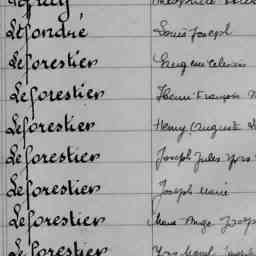 Lefondré Louis Joseph
Leforestier Eugène Célestin
Leforestier Henri François
Leforestier Henry Auguste
Leforestier Joseph Jules Yves
Leforestier Joseph Marie
Leforestier Marie Ange Joseph
Leforestier Yves Marie Joseph